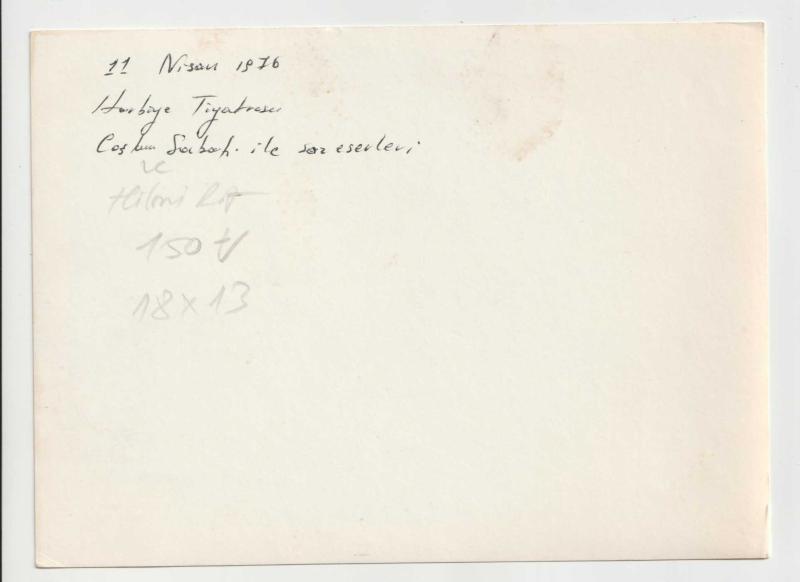 11 Nisan 1976
Harbiye Tiyatrosu
Coşkun Sabah ile saz eserleri
ve
150 tl
18x13